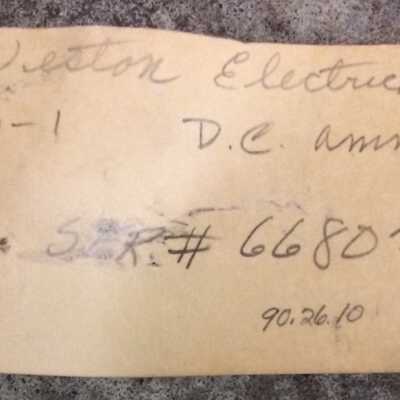 Weston Electric
-1 D.C. amm
SER. # 6680
90.26.10